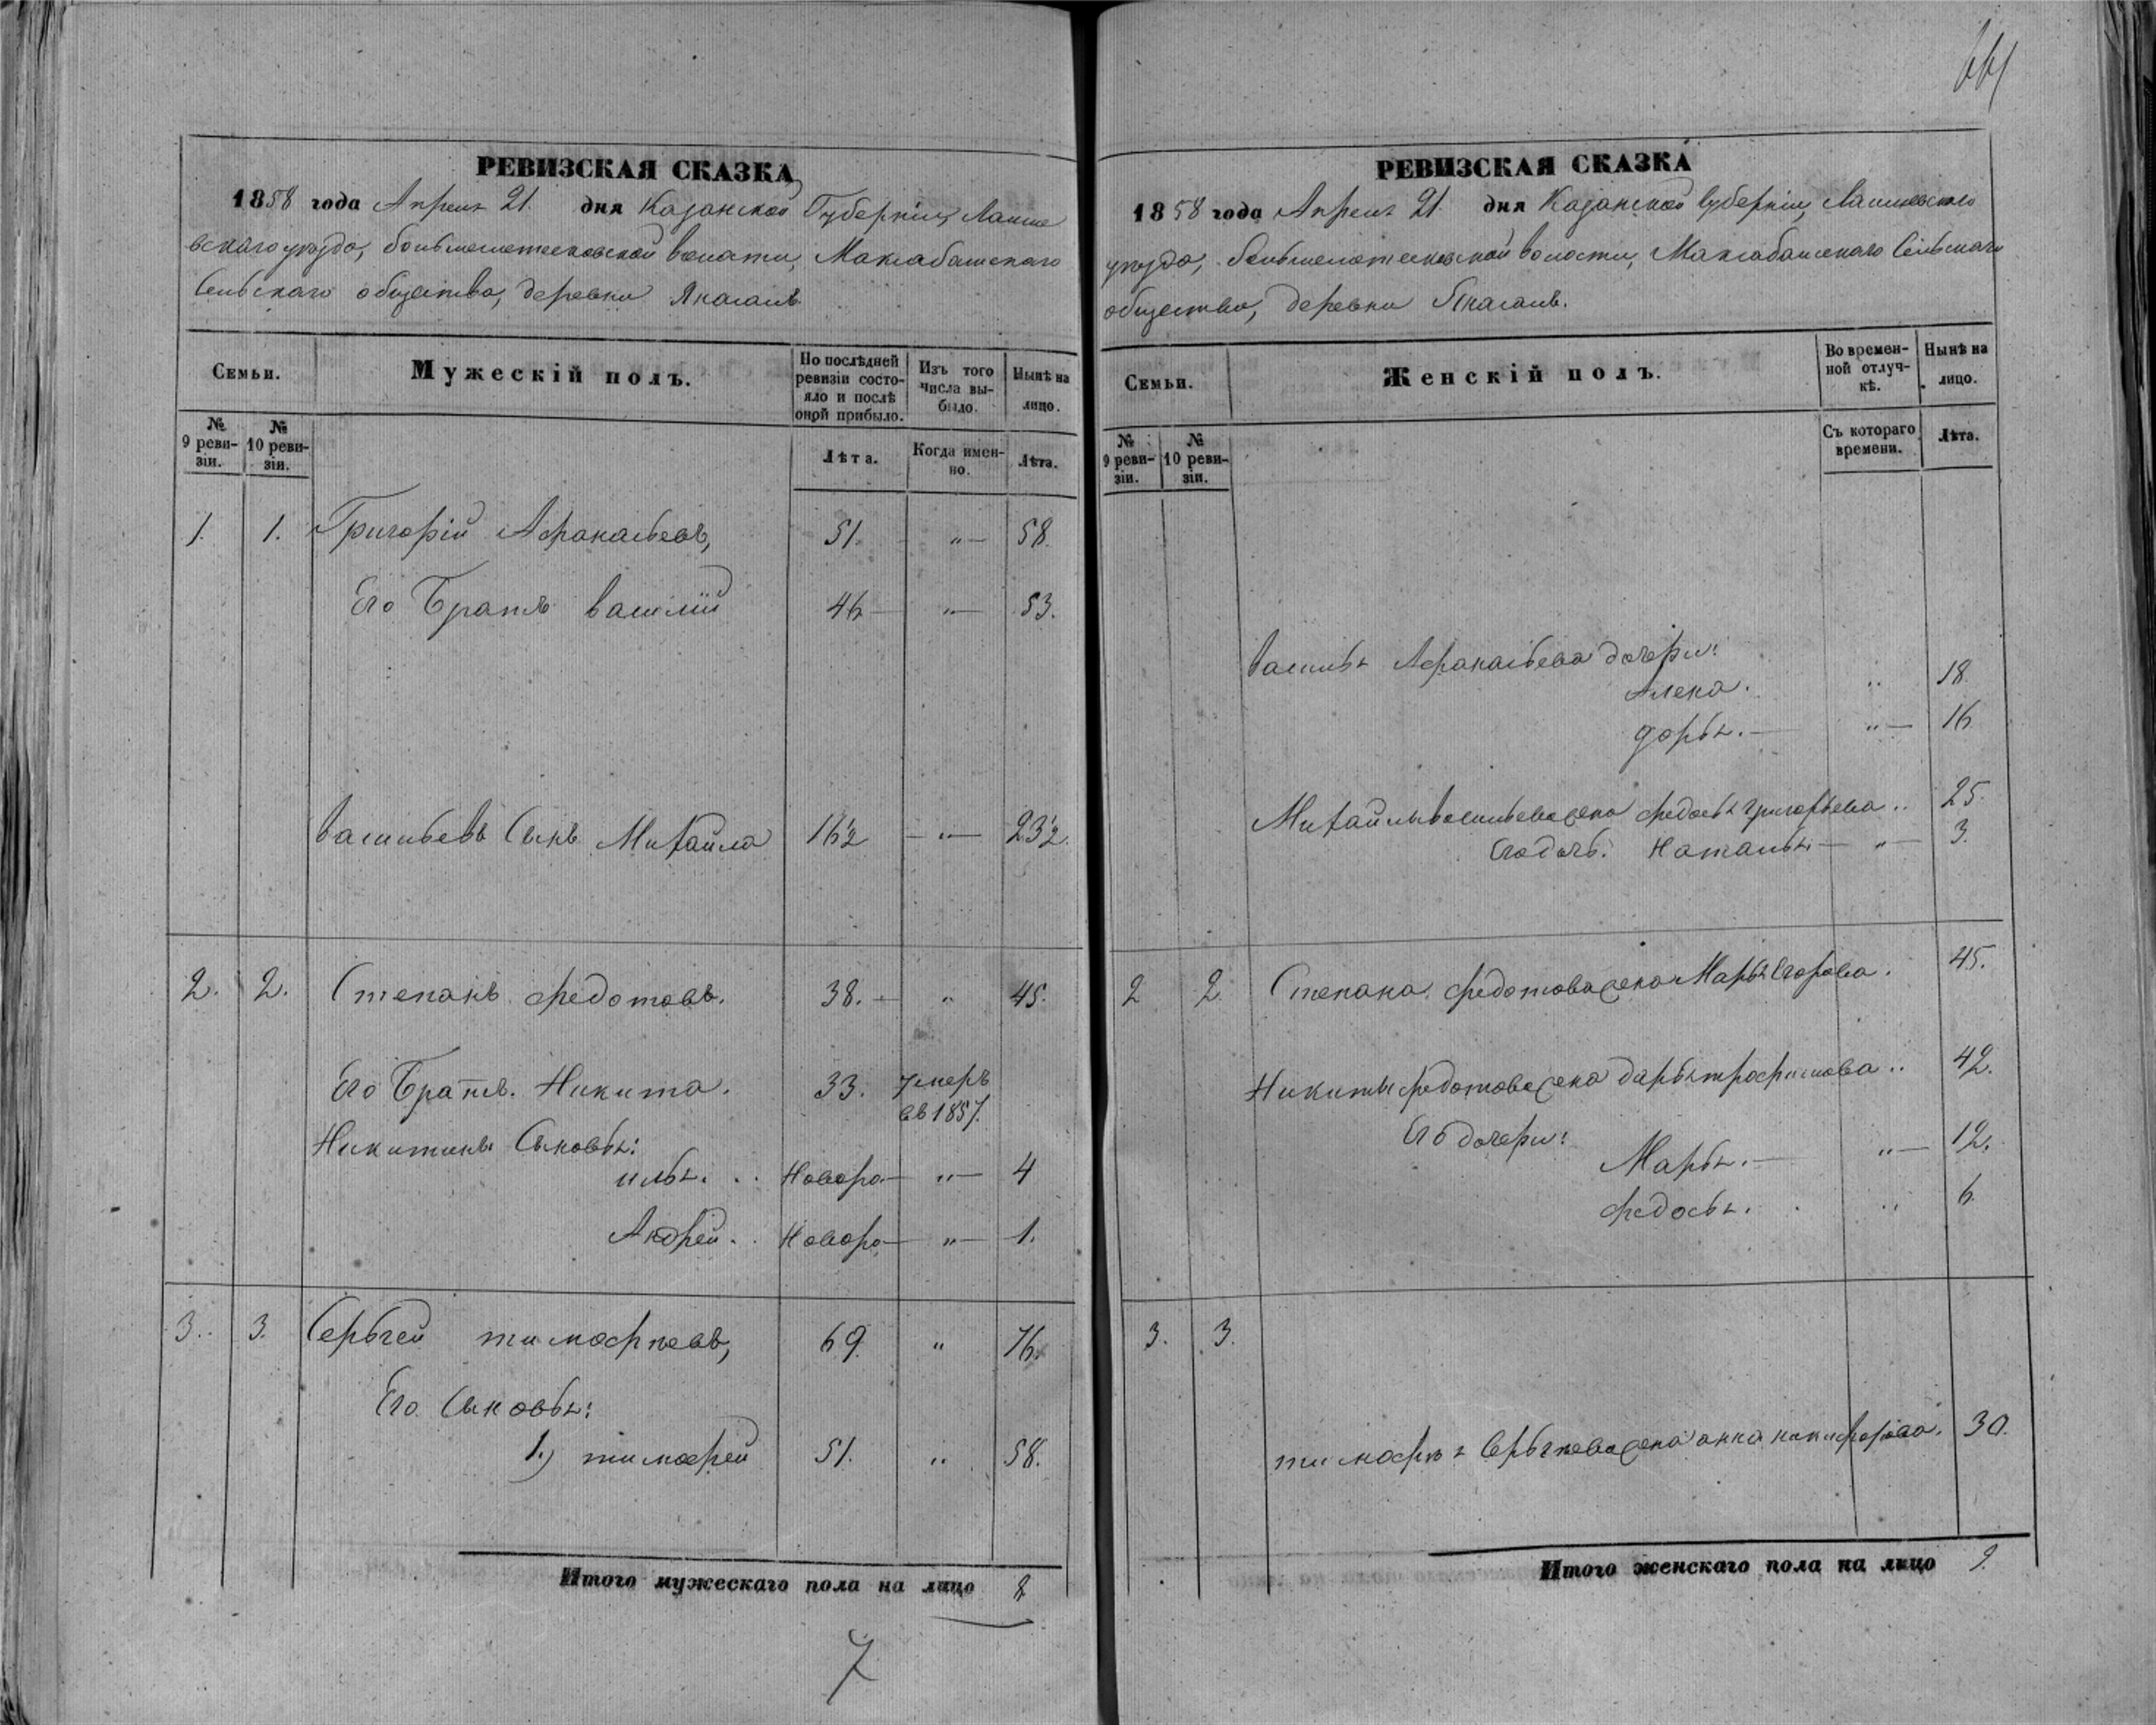 РЕВИЗСКАЯ СКАЗКА
1858 года Апреля 21. дня Казанской Губернiи, Лаише
вскаго уезда, волости,
Сельскаго общества, деревни
Семьи.
Мужескiй полъ.
По послѣдней ревизiи состояло и послѣ оной прибыло.
Изъ того числа выбыло.
Нынѣ на лицо.
№ 9 ревизiи.
№ 10 ревизiи.
Лѣта.
Когда именно.
Лѣта.
1. 1. Григорiй Афанасьевъ, 51. „— 58.
Его Братъ василiй 46 — „— 53.
васильевъ Сынъ Михаила 16½ — „— 23½.
2. 2. Степанъ Федотовъ. 38. — „ 45.
Его Братъ. Никита. 33. умеръ
въ 1857.
Никитины Сыновья:
илья. . . Новоро— „— 4
Андрей. . Новоро— „— 1.
3.. 3. Сергѣй тимофѣевъ, 69. „ 76.
Его Сыновья:
1.) тимофей 51. „ 58.
Итого мужескаго пола на лицо 8
7
661
РЕВИЗСКАЯ СКАЗКА
1858 года Апреля 21. дня Казанской губернiи, Лаишевскаго
уезда, волости, Сельскаго
общества, деревни
Семьи.
Женскiй полъ.
Во временной отлучкѣ.
Нынѣ на лицо.
№ 9 ревизiи.
№ 10 ревизiи.
Съ котораго времени.
Лѣта.
василья Афанасьева дочери:
Алена. „ 18
дарья. — „— 16
Михайлы васильева жена федосья григорьева .. 25.
Его дочь. Наталья — „— 3.
2 2. Степана федотова жена Марья Егорова. 45.
Никиты федотова жена дарья трофимова .. 42.
Его дочери:
Марья. — „— 12.
федосья. . „ 6
3. 3.
тимофея Сергѣева жена анна никифорова. 30.
Итого женскаго пола на лицо 9.